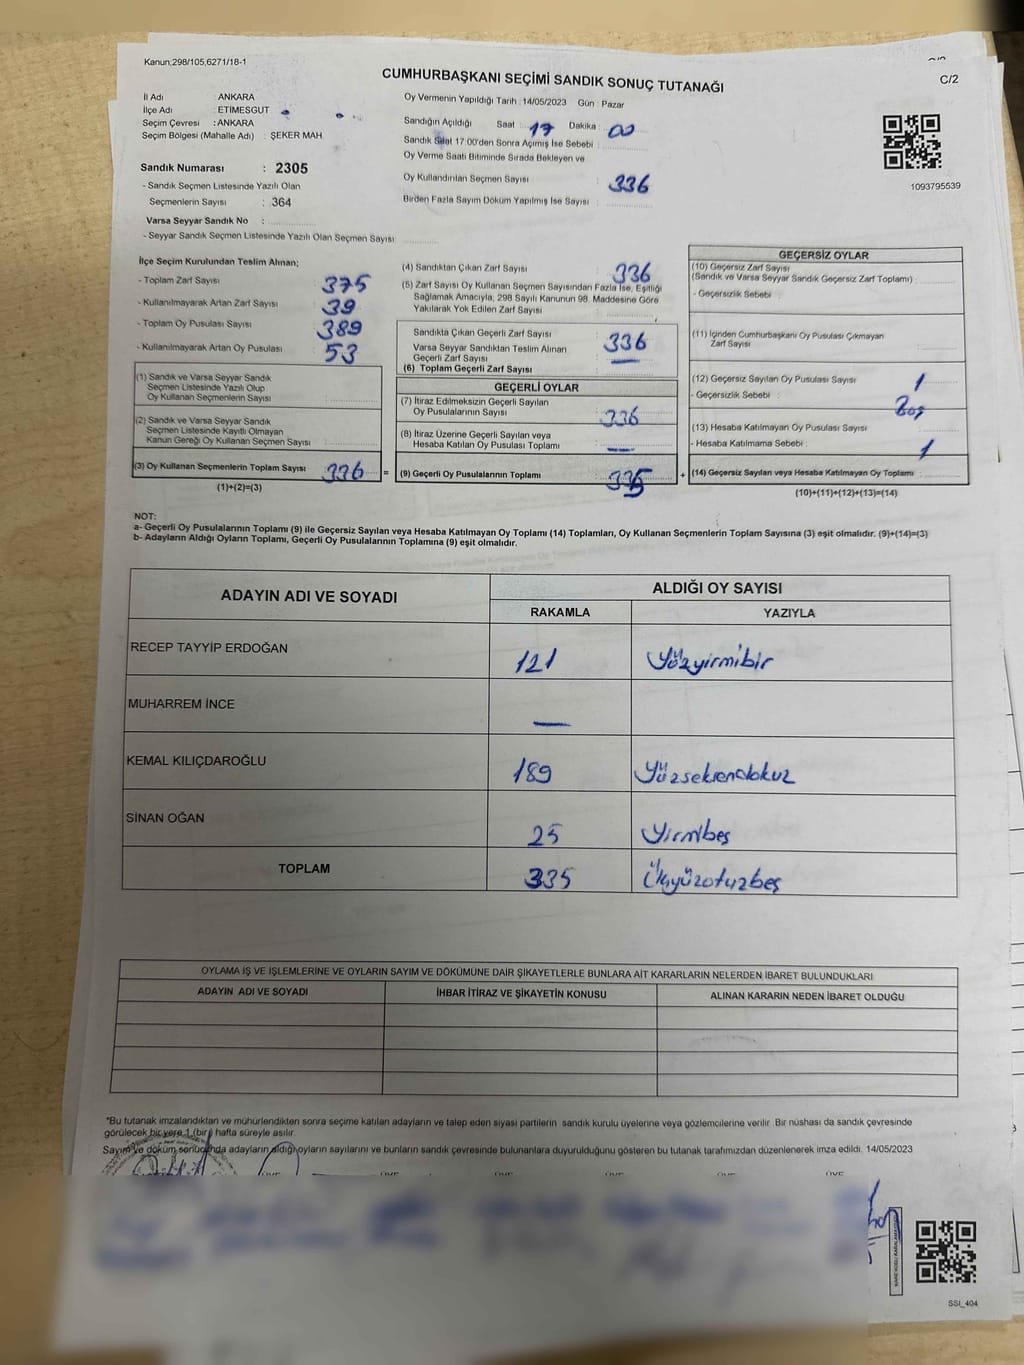 Kanun;298/105,6271/18-1
CUMHURBAŞKANI SEÇİMİ SANDIK SONUÇ TUTANAĞI
C/2
İl Adı : ANKARA
İlçe Adı : ETİMESGUT
Seçim Çevresi : ANKARA
Seçim Bölgesi (Mahalle Adı) : ŞEKER MAH
Oy Vermenin Yapıldığı Tarih : 14/05/2023 Gün : Pazar
Sandığın Açıldığı Saat 17 Dakika : 00
Sandık Saat 17:00'den Sonra Açılmış İse Sebebi :
Oy Verme Saati Bitiminde Sırada Bekleyen ve
Oy Kullandırılan Seçmen Sayısı : 336
Birden Fazla Sayım Döküm Yapılmış İse Sayısı :
1093795539
Sandık Numarası : 2305
- Sandık Seçmen Listesinde Yazılı Olan
Seçmenlerin Sayısı : 364
Varsa Seyyar Sandık No :
- Seyyar Sandık Seçmen Listesinde Yazılı Olan Seçmen Sayısı:
İlçe Seçim Kurulundan Teslim Alınan;
- Toplam Zarf Sayısı : 375
- Kullanılmayarak Artan Zarf Sayısı : 39
- Toplam Oy Pusulası Sayısı : 389
- Kullanılmayarak Artan Oy Pusulası : 53
(1) Sandık ve Varsa Seyyar Sandık
Seçmen Listesinde Yazılı Olup
Oy Kullanan Seçmenlerin Sayısı :
(2) Sandık ve Varsa Seyyar Sandık
Seçmen Listesinde Kayıtlı Olmayan
Kanun Gereği Oy Kullanan Seçmen Sayısı :
(3) Oy Kullanan Seçmenlerin Toplam Sayısı : 336 =
(1)+(2)=(3)
(4) Sandıktan Çıkan Zarf Sayısı : 336
(5) Zarf Sayısı Oy Kullanan Seçmen Sayısından Fazla İse, Eşitliği
Sağlamak Amacıyla, 298 Sayılı Kanunun 98. Maddesine Göre
Yakılarak Yok Edilen Zarf Sayısı :
Sandıkta Çıkan Geçerli Zarf Sayısı : 336
Varsa Seyyar Sandıktan Teslim Alınan
Geçerli Zarf Sayısı : —
(6) Toplam Geçerli Zarf Sayısı :
GEÇERLİ OYLAR
(7) İtiraz Edilmeksizin Geçerli Sayılan
Oy Pusulalarının Sayısı : 336
(8) İtiraz Üzerine Geçerli Sayılan veya
Hesaba Katılan Oy Pusulası Toplamı : —
(9) Geçerli Oy Pusulalarının Toplamı : 335 +
GEÇERSİZ OYLAR
(10) Geçersiz Zarf Sayısı
(Sandık ve Varsa Seyyar Sandık Geçersiz Zarf Toplamı) :
- Geçersizlik Sebebi :
(11) İçinden Cumhurbaşkanı Oy Pusulası Çıkmayan
Zarf Sayısı :
(12) Geçersiz Sayılan Oy Pusulası Sayısı : 1
- Geçersizlik Sebebi : Boş
(13) Hesaba Katılmayan Oy Pusulası Sayısı :
- Hesaba Katılmama Sebebi : 1
(14) Geçersiz Sayılan veya Hesaba Katılmayan Oy Toplamı :
(10)+(11)+(12)+(13)=(14)
NOT:
a- Geçerli Oy Pusulalarının Toplamı (9) ile Geçersiz Sayılan veya Hesaba Katılmayan Oy Toplamı (14) Toplamları, Oy Kullanan Seçmenlerin Toplam Sayısına (3) eşit olmalıdır. (9)+(14)=(3)
b- Adayların Aldığı Oyların Toplamı, Geçerli Oy Pusulalarının Toplamına (9) eşit olmalıdır.
ADAYIN ADI VE SOYADI
ALDIĞI OY SAYISI
RAKAMLA YAZIYLA
RECEP TAYYİP ERDOĞAN 121 Yüzyirmibir
MUHARREM İNCE —
KEMAL KILIÇDAROĞLU 189 Yüzseksendokuz
SİNAN OĞAN 25 Yirmibeş
TOPLAM 335 Üçyüzotuzbeş
OYLAMA İŞ VE İŞLEMLERİNE VE OYLARIN SAYIM VE DÖKÜMÜNE DAİR ŞİKAYETLERLE BUNLARA AİT KARARLARIN NELERDEN İBARET BULUNDUKLARI
ADAYIN ADI VE SOYADI İHBAR İTİRAZ VE ŞİKAYETİN KONUSU ALINAN KARARIN NEDEN İBARET OLDUĞU
*Bu tutanak imzalandıktan ve mühürlendikten sonra seçime katılan adayların ve talep eden siyasi partilerin sandık kurulu üyelerine veya gözlemcilerine verilir. Bir nüshası da sandık çevresinde
görülecek bir yere 1 (bir) hafta süreyle asılır.
Sayım ve döküm sonucunda adayların aldığı oyların sayılarını ve bunların sandık çevresinde bulunanlara duyurulduğunu gösteren bu tutanak tarafımızdan düzenlenerek imza edildi. 14/05/2023
SSI_404